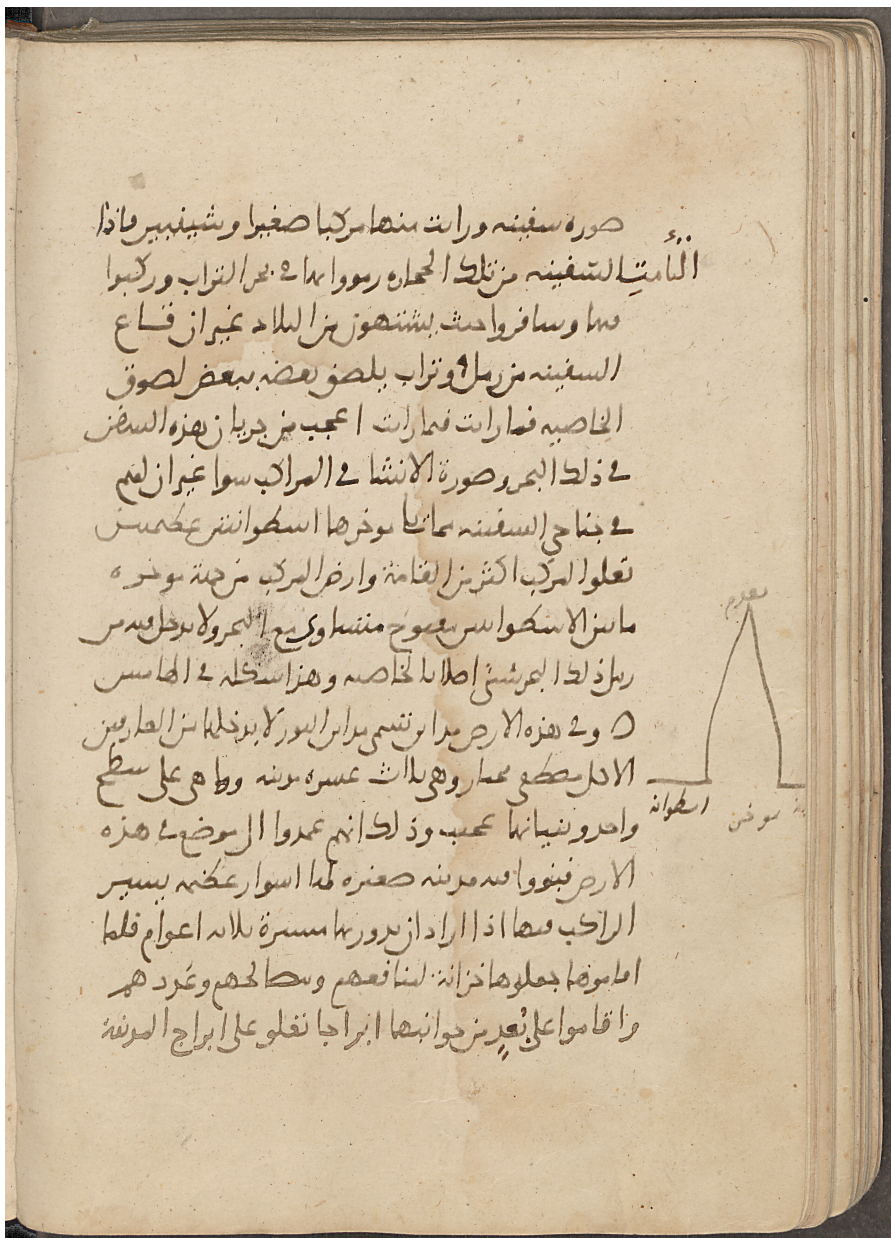 صورة سفينه ورايت منها مركبا صغيرا وشيئيين فاذا
التأمت السفينه من تلك الحجاره رموا بها في بحر التراب وركبوا
فيها وسافروا حيث يشتهون من البلاد غير ان قاع
السفينه من رمل او تراب يلصق بعضه ببعض لصوق
الخاصيه فما رايت فيما رايت اعجب من جريان هذه السفن
في ذلك البحر وصورة الانشا في المراكب سوا غير ان لهم
في جناحي السفينه مما يلي موخرها اسطوانتين عظيمتين
تعلوا المركب اكثر من القامة وارض المركب من جهة موخره
ما بين الاسطوانتين مفتوح متساوي مع البحر ولا يدخل فيه من
رمل ذلك البحر شئ اصلا بالخاصيه وهذا شكله في الهامش
ه وفي هذه الارض مداين تسمى مداين النور لا يدخلها من العارفين
الا كل مصطفى مختار وهي ثلاث عشره مدينه وهي على سطح
واحد وبنيانها عجيب وذلك انهم عمدوا الى موضع في هذه
الارض فبنوا فيه مدينه صغيره لها اسوار عظيمه يسير
الراكب فيها اذا اراد ان يدور بها مسيرة ثلاثه اعوام فلما
اقاموها جعلوها خزانة لمنافعهم ومصالحهم وعددهم
واقاموا على بعد من جوانبها ابراجا تعلو على ابراج المدينة
مقدم
اسطوانه
موخر